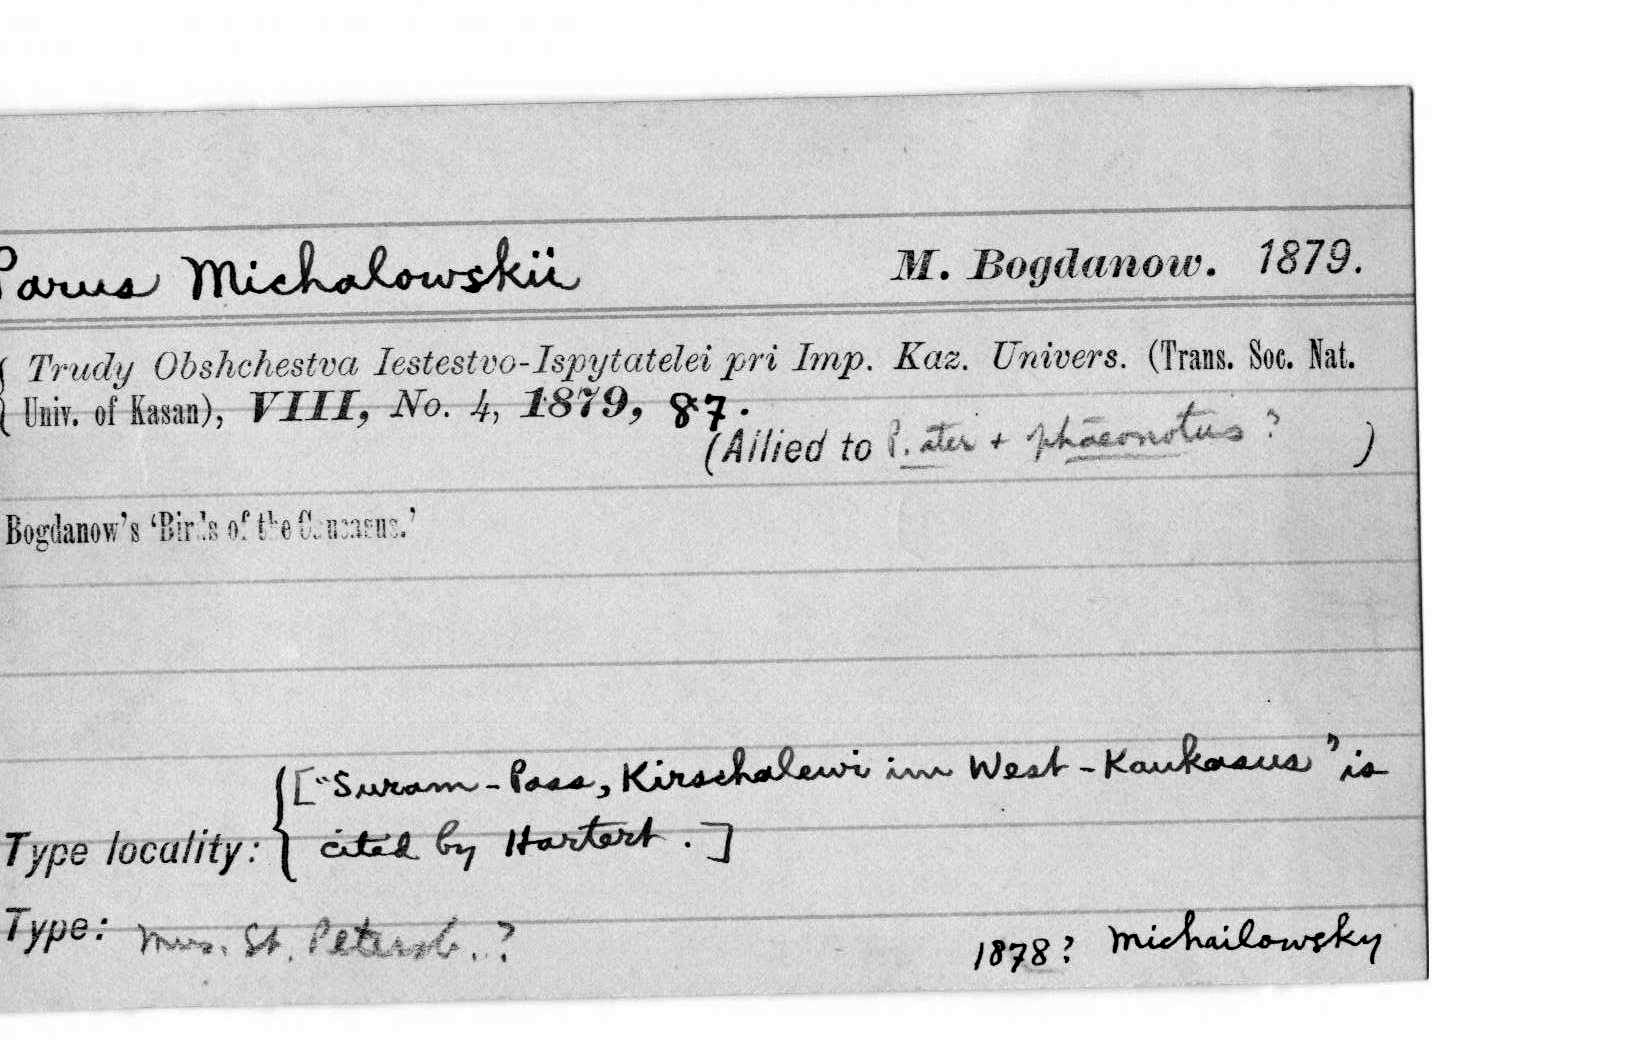 Parus Michalowskii M. Bogdanow. 1879.
{ Trudy Obshchestva Iestestvo-Ispytatelei pri Imp. Kaz. Univers. (Trans. Soc. Nat.
Univ. of Kasan), VIII, No. 4, 1879, 87.
(Allied to P. ater + phæonotus ? )
Bogdanow's 'Birds of the Caucasus.'
["Suram-Pass, Kirschalewi im West-Kaukasus" is
Type locality: { cited by Hartert.]
Type: Mus. St. Petersb. ? 1878? Michailowsky